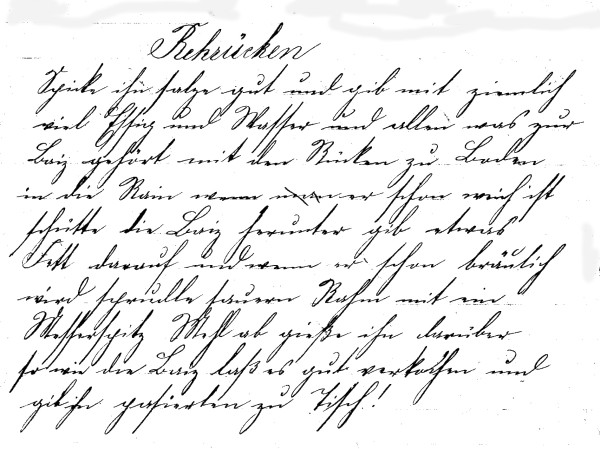 Rehrücken
Spicke ihn salze gut und gib mit ziemlich
viel Essig und Wasser und allen was zur
Baiz gehört mit den Rücken zu Boden
in die Rain wenn er schon weich ist
schütte die Baiz herunter gib etwas
Fett darauf und wenn er schon bräulich
wird sprudle sauern Rahm mit ein
Messerspitz Mehl ab gieße ihn darüber
so wie die Baiz laß es gut verkochen und
gib ihn pasierten zu Tisch!